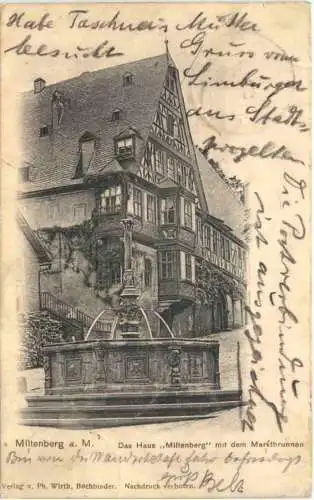 Habe Taschners Mutter
besucht
Gruss vom
Limburger
aus Stadt-
prozelten
Die Postverbindung
ist ausgezeichnet
Miltenberg a. M.
Das Haus „Miltenberg" mit dem Marktbrunnen
Bin von der
befriedigt
Verlag v. Ph. Wirth, Buchbinder. Nachdruck verboten.